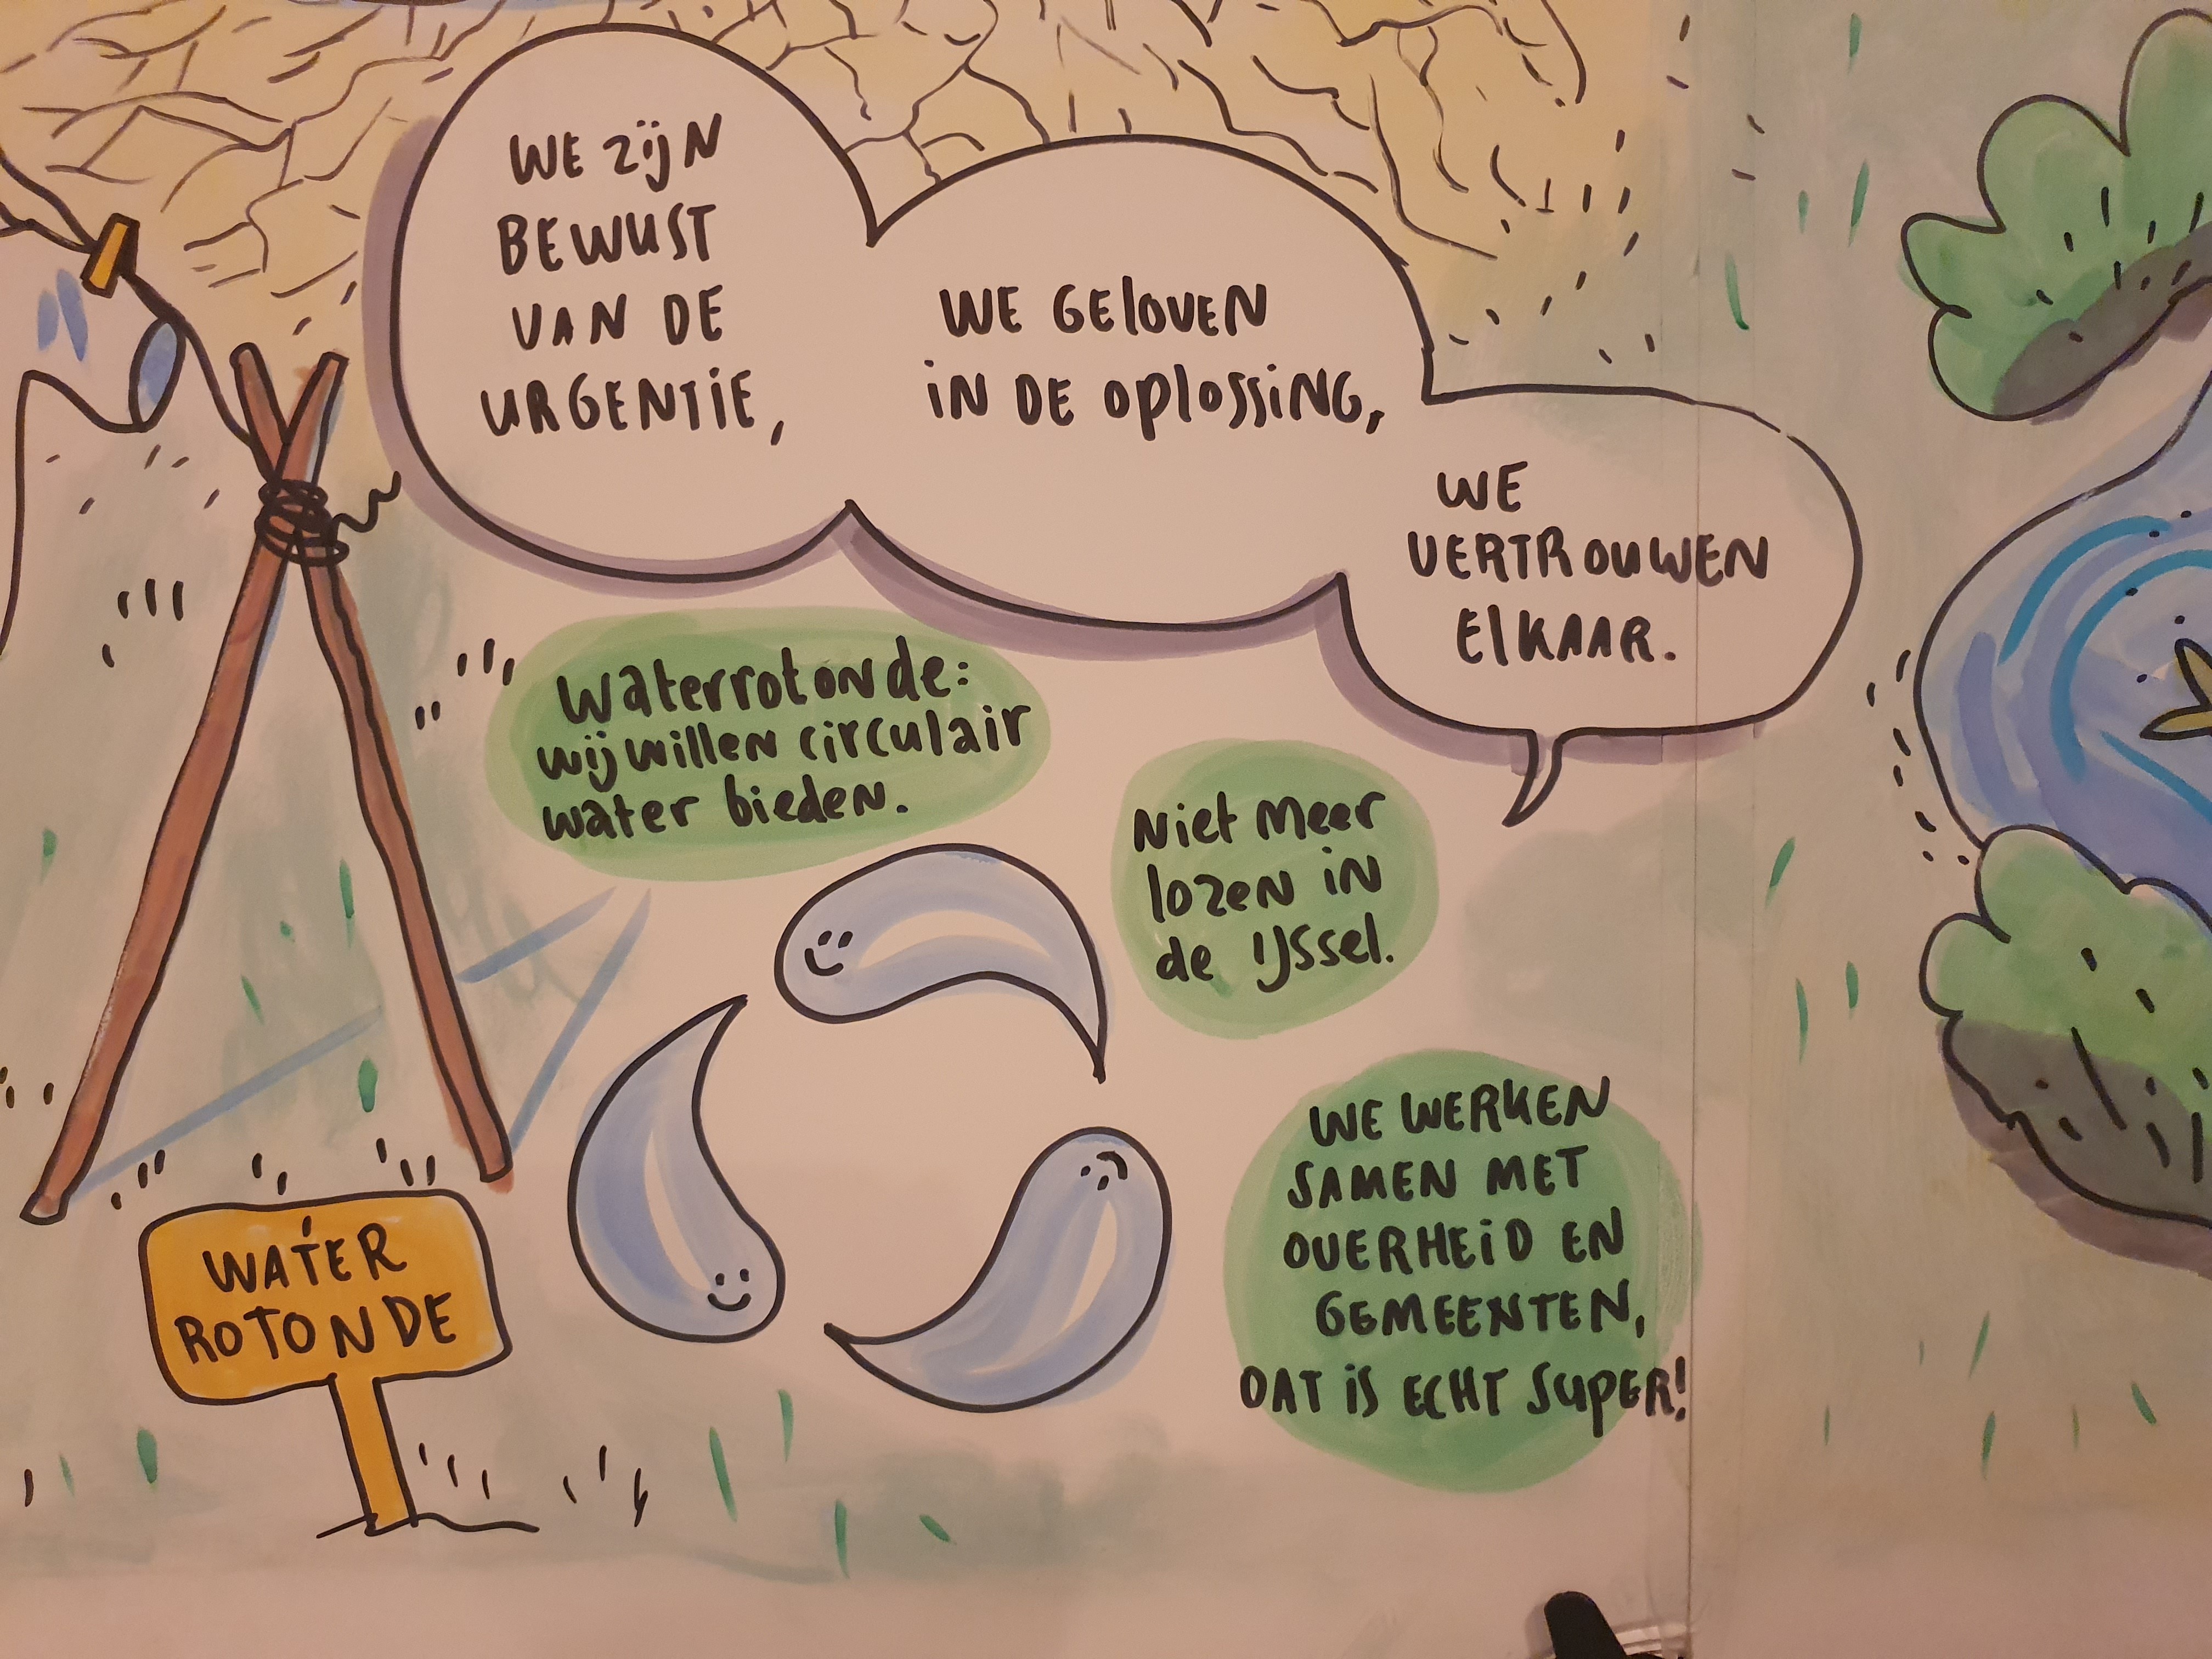 WE ZIJN
BEWUST
VAN DE
URGENTIE,
WE GELOVEN
IN DE OPLOSSING,
WE
VERTROUWEN
ELKAAR.
Waterrotonde:
wij willen circulair
water bieden.
Niet meer
lozen in
de IJssel.
WE WERKEN
SAMEN MET
OVERHEID EN
GEMEENTEN,
DAT IS ECHT SUPER!
WATER
ROTONDE